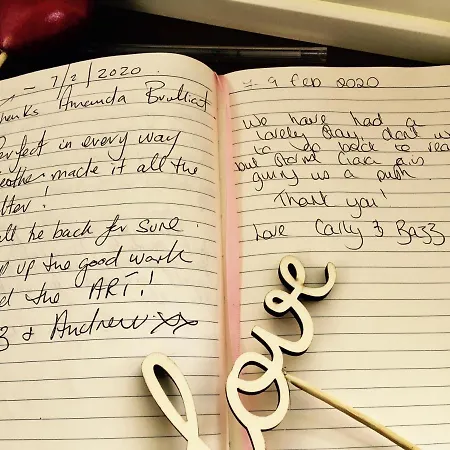 7/2/2020
Thanks Amanda Brulliat
Perfect in every way
made it all the
!
be back for sure
up the good work
the ART!
& Andrew xx
9 Feb 2020
We have had a
lovely day, don't w
to go back to rea
but Storm Ciara is
giving us a push
Thank you!
Love Carly & Bazz
love